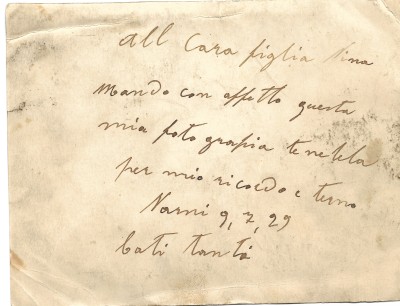 all Cara figlia Nina
Mando con affetto questa
mia foto grafia tenetela
per mio ricordo e terno
Narni 9, 7, 29
bati tanti